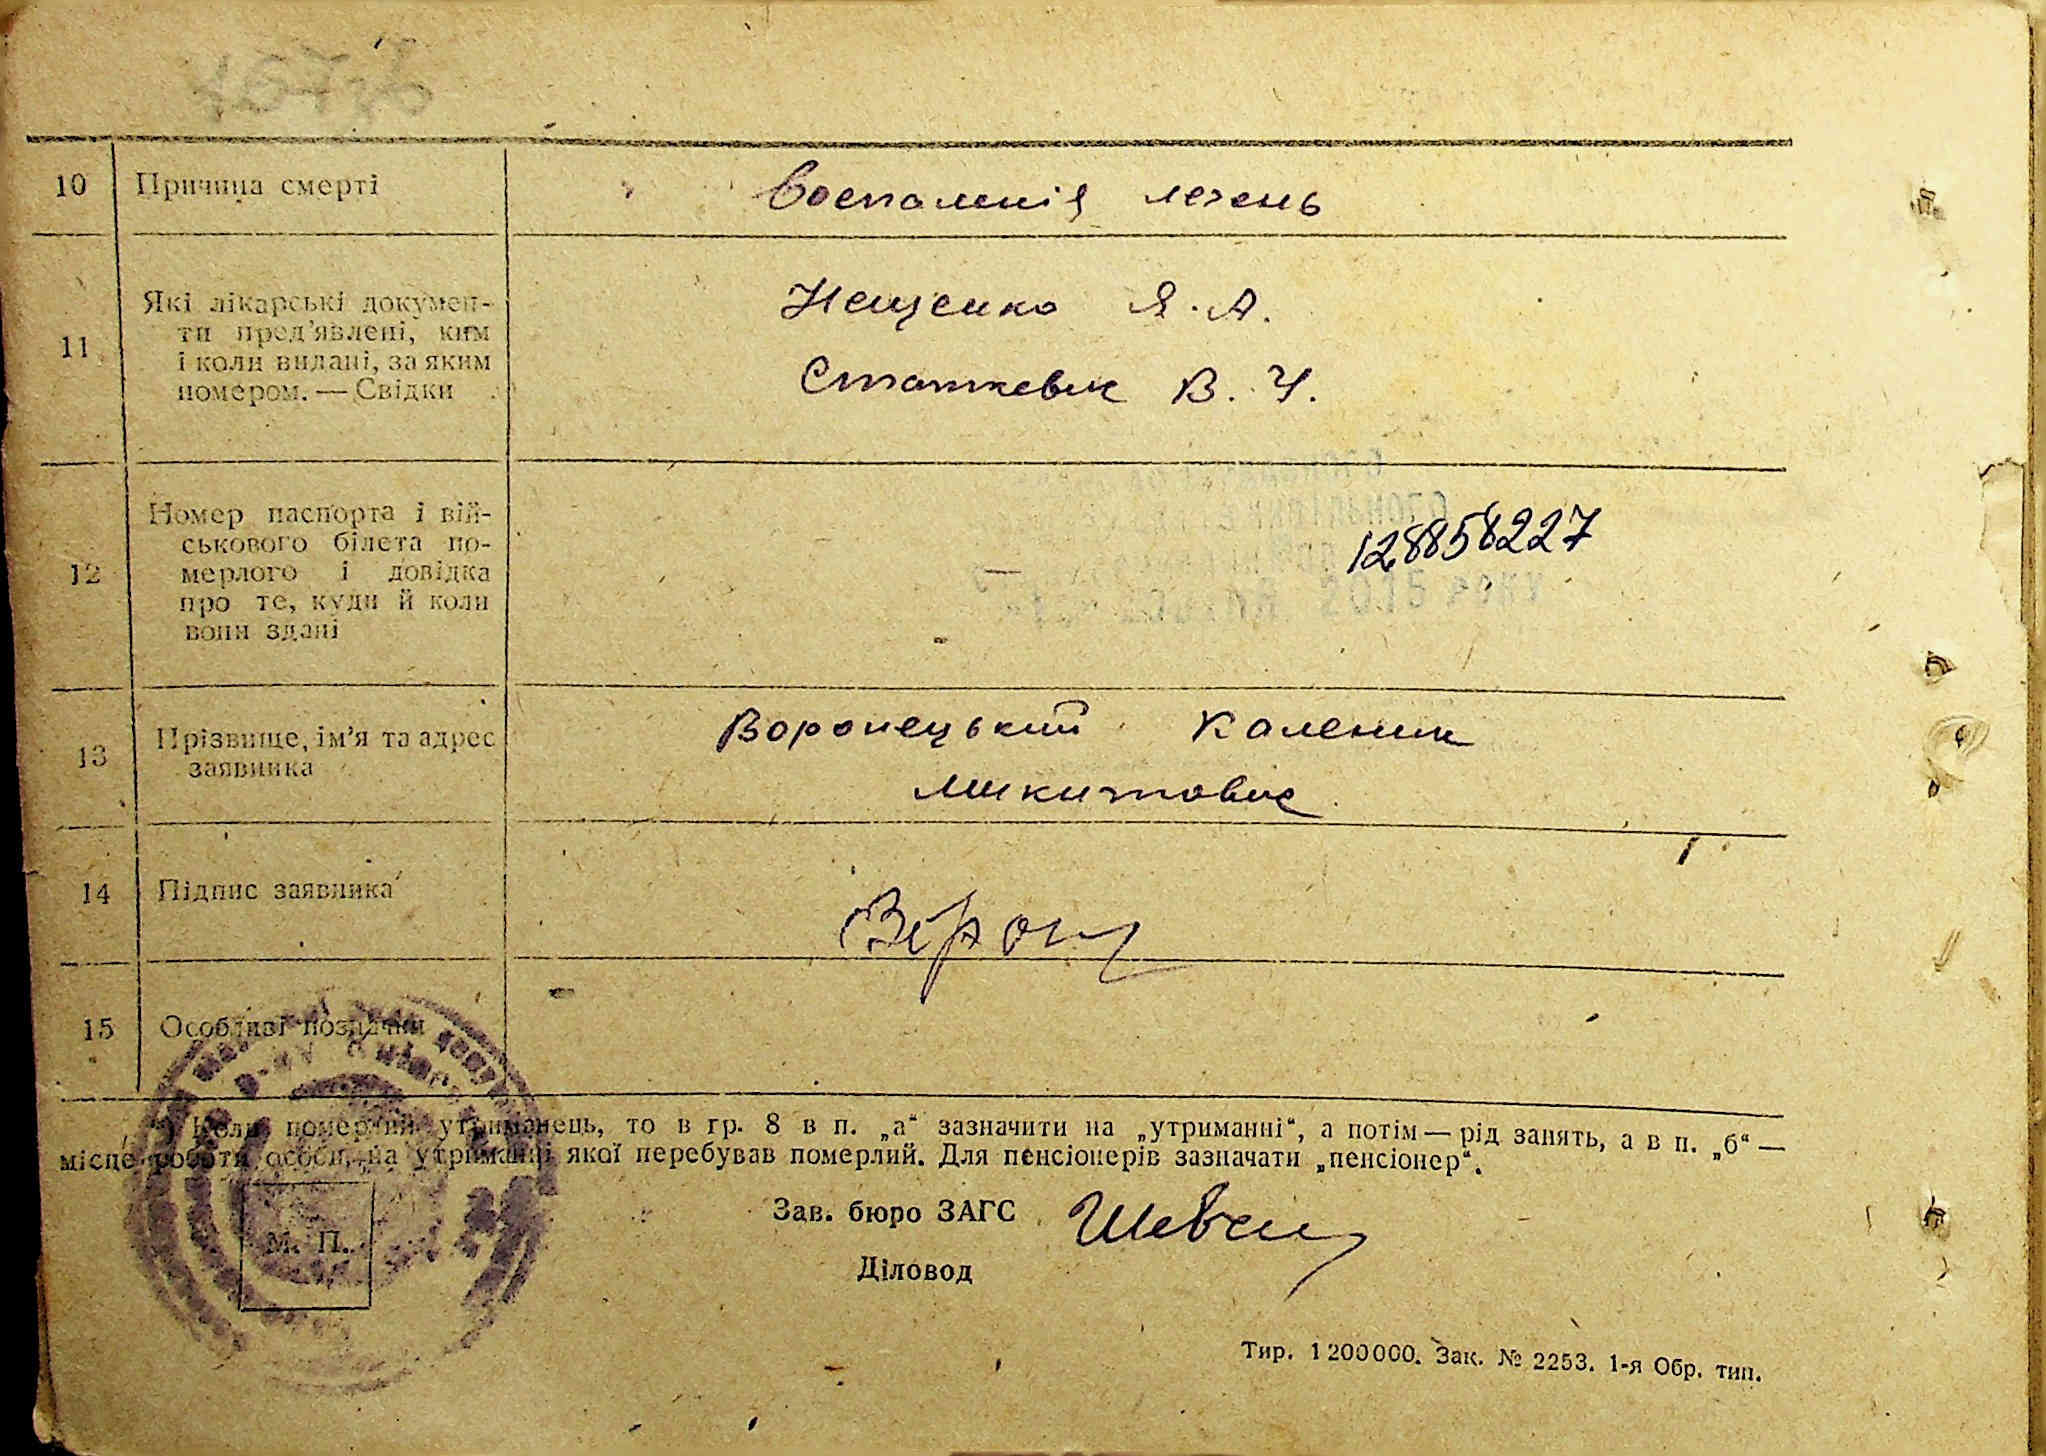 10 Причина смерті Воспаленія легень
11 Які лікарські докумен-
ти пред'явлені, ким
і коли видані, за яким
номером. — Свідки
Нещенко Я. А.
Сташкевич В. Ч.
12 Номер паспорта і вій-
ськового білета по-
мерлого і довідка
про те, куди й коли
вони здані
—
128858227
2015 року
13 Прізвище, ім'я та адрес
заявника
Воронецький Каленик
Микитович
14 Підпис заявника Ворон
15 Особливі позначки
Коли померлий утриманець, то в гр. 8 в п. „а“ зазначити на „утриманні“, а потім — рід занять, а в п. „б“ —
місце роботи особи, на утриманні якої перебував померлий. Для пенсіонерів зазначати „пенсіонер“.
М. П.
Зав. бюро ЗАГС
Діловод
Тир. 1200000. Зак. № 2253. 1-я Обр. тип.